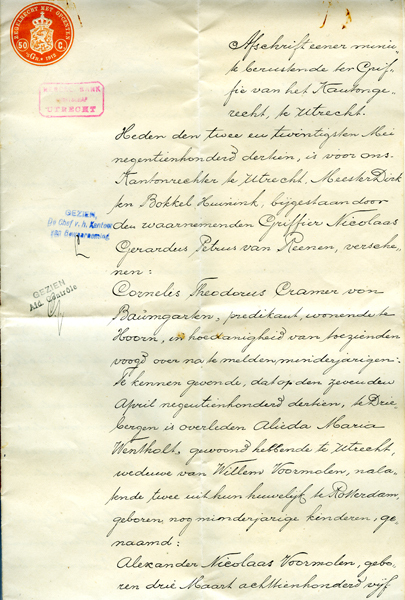 KLEINZEGEL RECHT MET OPCENTEN
50 C.
UTRECHT
Afschrift eener minu-
te berustende ter Grif-
fie van het Kantonge-
recht, te Utrecht.
Heden den twee en twintigsten Mei
negentienhonderd dertien, is voor ons
Kantonrechter te Utrecht, Meester Dirk
ten Bokkel Huinink, bijgestaan door
den waarnemenden Griffier Nicolaas
Gerardus Petrus van Reenen, versche-
nen:
GEZIEN,
De Chef v. h. Kantoor
GEZIEN
Afd. Contrôle
Cornelis Theodorus Cramer von
Baumgarten, predikant, wonende te
Hoorn, in hoedanigheid van toezienden
voogd over na te melden minderjarigen:
Te kennen gevende, dat op den zevenden
April negentienhonderd dertien, te Drie-
bergen is overleden Alieda Maria
Wentholt, gewoond hebbende te Utrecht,
weduwe van Willem Voormolen, nala-
tende twee uit hun huwelijk te Rotterdam
geboren, nog minderjarige kinderen, ge-
naamd:
Alexander Nicolaas Voormolen, gebo-
ren drie Maart achttienhonderd vijf